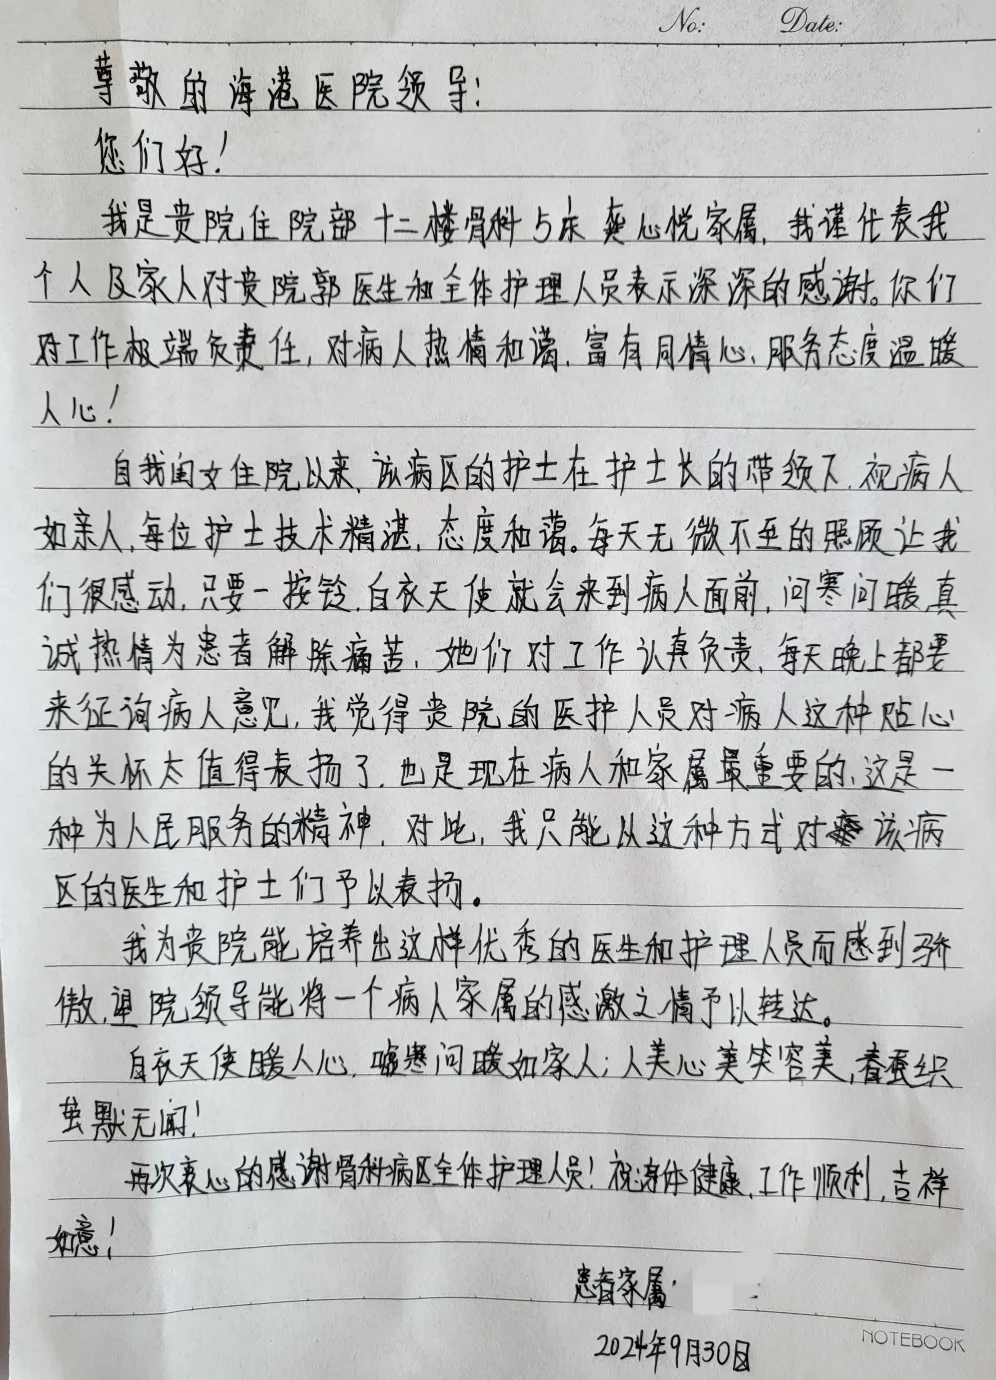 No: Date:
尊敬的海港医院领导！
您们好！
我是贵院住院部十二楼骨科5床 心悦家属，我谨代表我
个人及家人对贵院郭医生和全体护理人员表示深深的感谢。你们
对工作极端负责任，对病人热情和蔼，富有同情心，服务态度温暖
人心！
自我闺女住院以来，该病区的护士在护士长的带领下，视病人
如亲人，每位护士技术精湛，态度和蔼。每天无微不至的照顾让我
们很感动，只要一按铃，白衣天使就会来到病人面前，问寒问暖，真
诚热情为患者解除痛苦，她们对工作认真负责，每天晚上都要
来征询病人意见，我觉得贵院的医护人员对病人这种贴心
的关怀太值得表扬了，也是现在病人和家属最重要的，这是一
种为人民服务的精神，对此，我只能以这种方式对该病
区的医生和护士们予以表扬。
我为贵院能培养出这样优秀的医生和护理人员而感到骄
傲，望院领导能将一个病人家属的感激之情予以转达。
白衣天使暖人心，嘘寒问暖如家人；人美心美笑容美，春蚕织
茧默无闻！
再次衷心的感谢骨科病区全体护理人员！祝身体健康，工作顺利，吉祥
如意！
患者家属：
2024年9月30日
NOTEBOOK